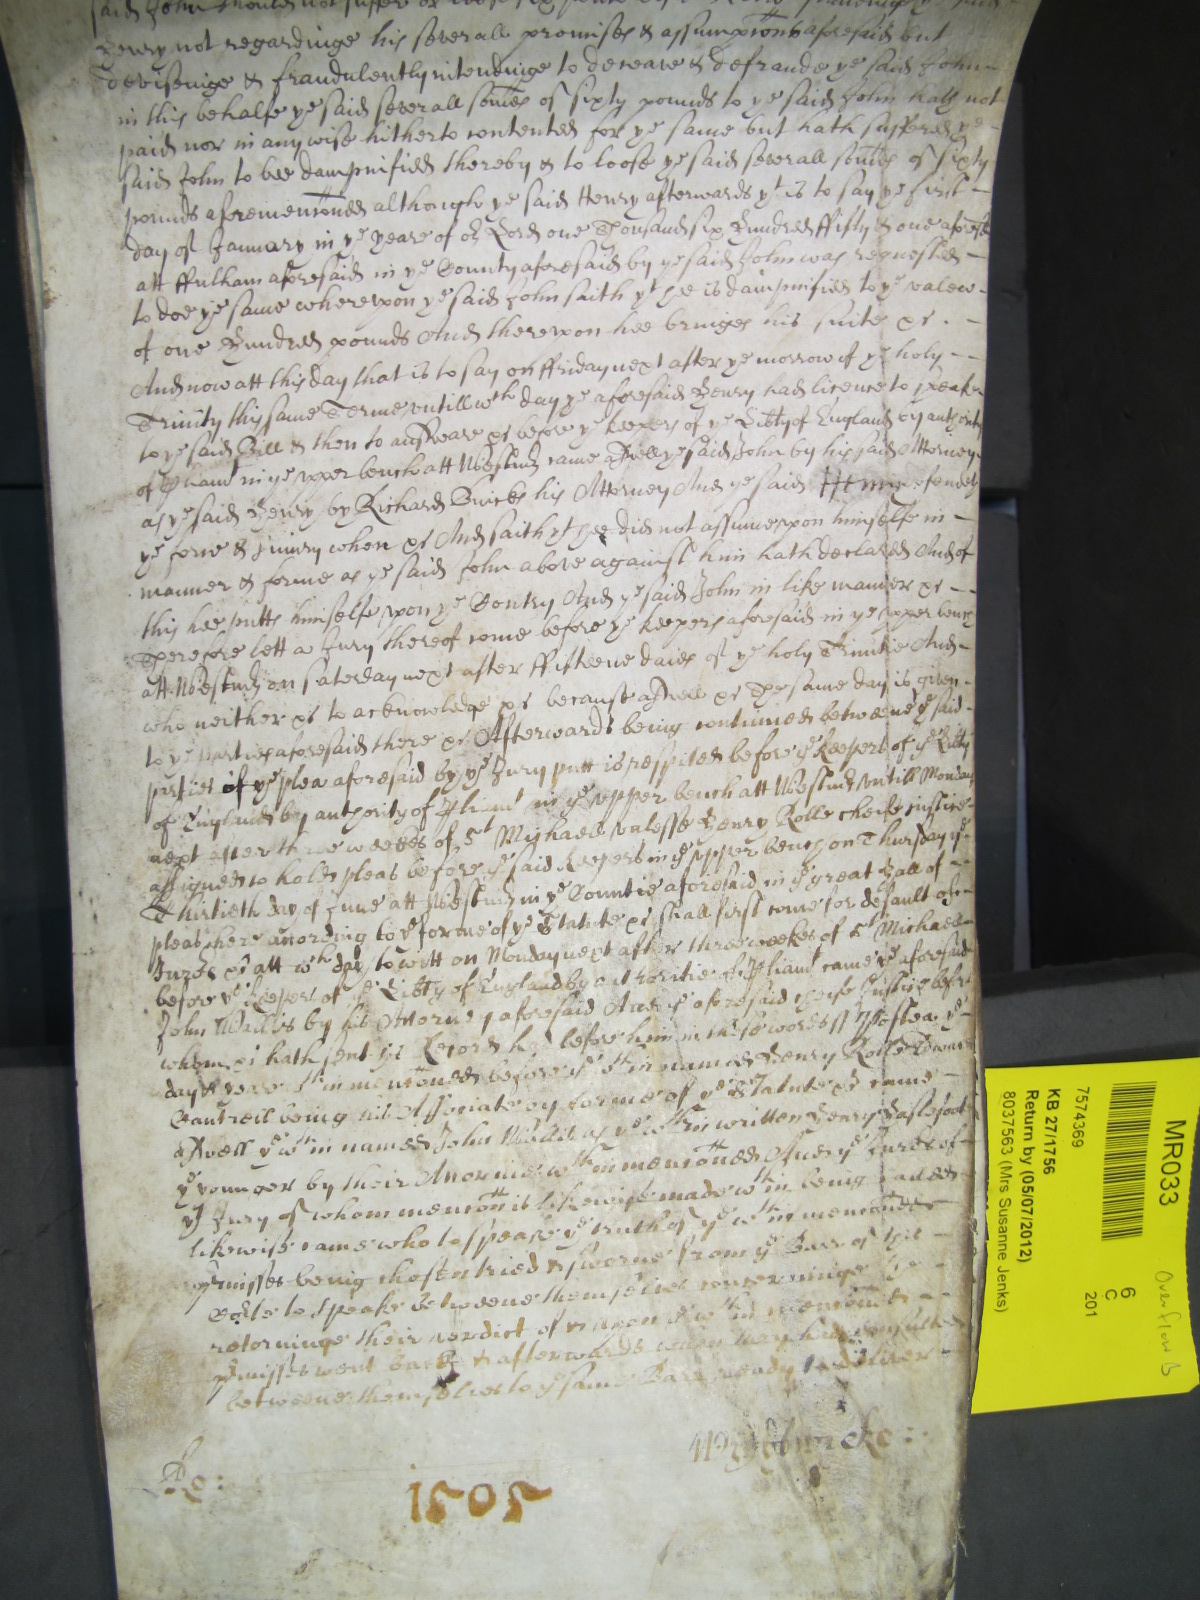 said John should not suffer or loose six pence
Henry not regardinge his severall promises & assumptions aforesaid but
deviseinge & fraudulently intendinge to deceave & defraude ye said John
in this behalfe ye said severall somes of sixty pounds to ye said John hath not
paid nor in any wise hitherto contented for ye same but hath suffered ye
said John to bee dampnified thereby & to loose ye said severall somes of sixty
pounds aforementoned although ye said Henry afterwards yt is to say ye first
day of January in ye yeare of or Lord one Thousand six Hundred ffifty & one aforesd
att ffulham aforesaid in ye County aforesaid by ye said John was requested
to doe ye same whereupon ye said John saith yt hee is dampnified to ye valew
of one Hundred pounds And thereupon hee bringes his suite &c.
And now att this day that is to say on ffriday next after ye morrow of ye holy
Trinity this same Terme untill wch day ye aforesaid Henry had licence to speake
to ye said Bill & then to answeare &c before ye keepers of ye Libty of England by authority
of Pliamt in ye upper bench att Westmr came aswell ye said John by his said Attorney
as ye said Henry by Richard his Attorney And ye said Henry defendeth
ye force & Iniury when &c And saith yt hee did not assume upon himselfe in
manner & forme as ye said John above against him hath declared And of
this hee putts himselfe upon ye Contry And ye said John in like manner &c
Therefore lett a Jury thereof come before ye keepers aforesaid in ye upper bench
att Westmr on Saterday next after ffifteene daies of ye holy Trinitie And
who neither &c to acknowledge &c because aswell &c The same day is given
to ye parties aforesaid there &c Afterwards being continued betweene ye said
parties of ye plea aforesaid by ye Jury putt is respited before ye keepers of ye Libty
of England by authority of Pliamt in ye upper bench att Westmr untill Monday
next after three weekes of St Michaell unlesse Henry Rolle cheife justice
assigned to hold pleas before ye said keepers in ye upper bench on Thursday ye
Thirtieth day of June att Westmr in ye Countie aforesaid in ye great Hall of
pleas there according to ye forme of ye Statute &c shall first come for default of
Jurors &c att wch day to witt on Monday next after three weekes of St Michaell
before ye keepers of ye Libty of England by authoritie of Pliamt came ye aforesaid
John Wallis by his Attorney aforesaid And ye aforesaid cheife Justice before
whom &c hath sent his Record had before him in these words Postea ye
day & within mentoned before ye within named Henry Rolle
being his Associate by forme of ye Statute &c came
aswell ye within named John Wallis as ye within written Henry Haslefoot
ye younger by their Attornies within mentoned And ye Jurors of
ye Jury of whom mention is likewise made within being called
likewise came who to speake ye truth of ye within mentoned
pmisses being chosen tried & sworne from ye Barr of the
to speake betweene themselves concerninge ye
retorninge their verdict of & upon ye within mentoned
pmisses went back & afterwards when they had consulted
betweene themselves to ye same Barr ready to deliver
Ro:
1505
MR033
7574369
6
C
201
KB 27/1756
Return by (05/07/2012)
8037563 (Mrs Susanne Jenks)
Overflow B